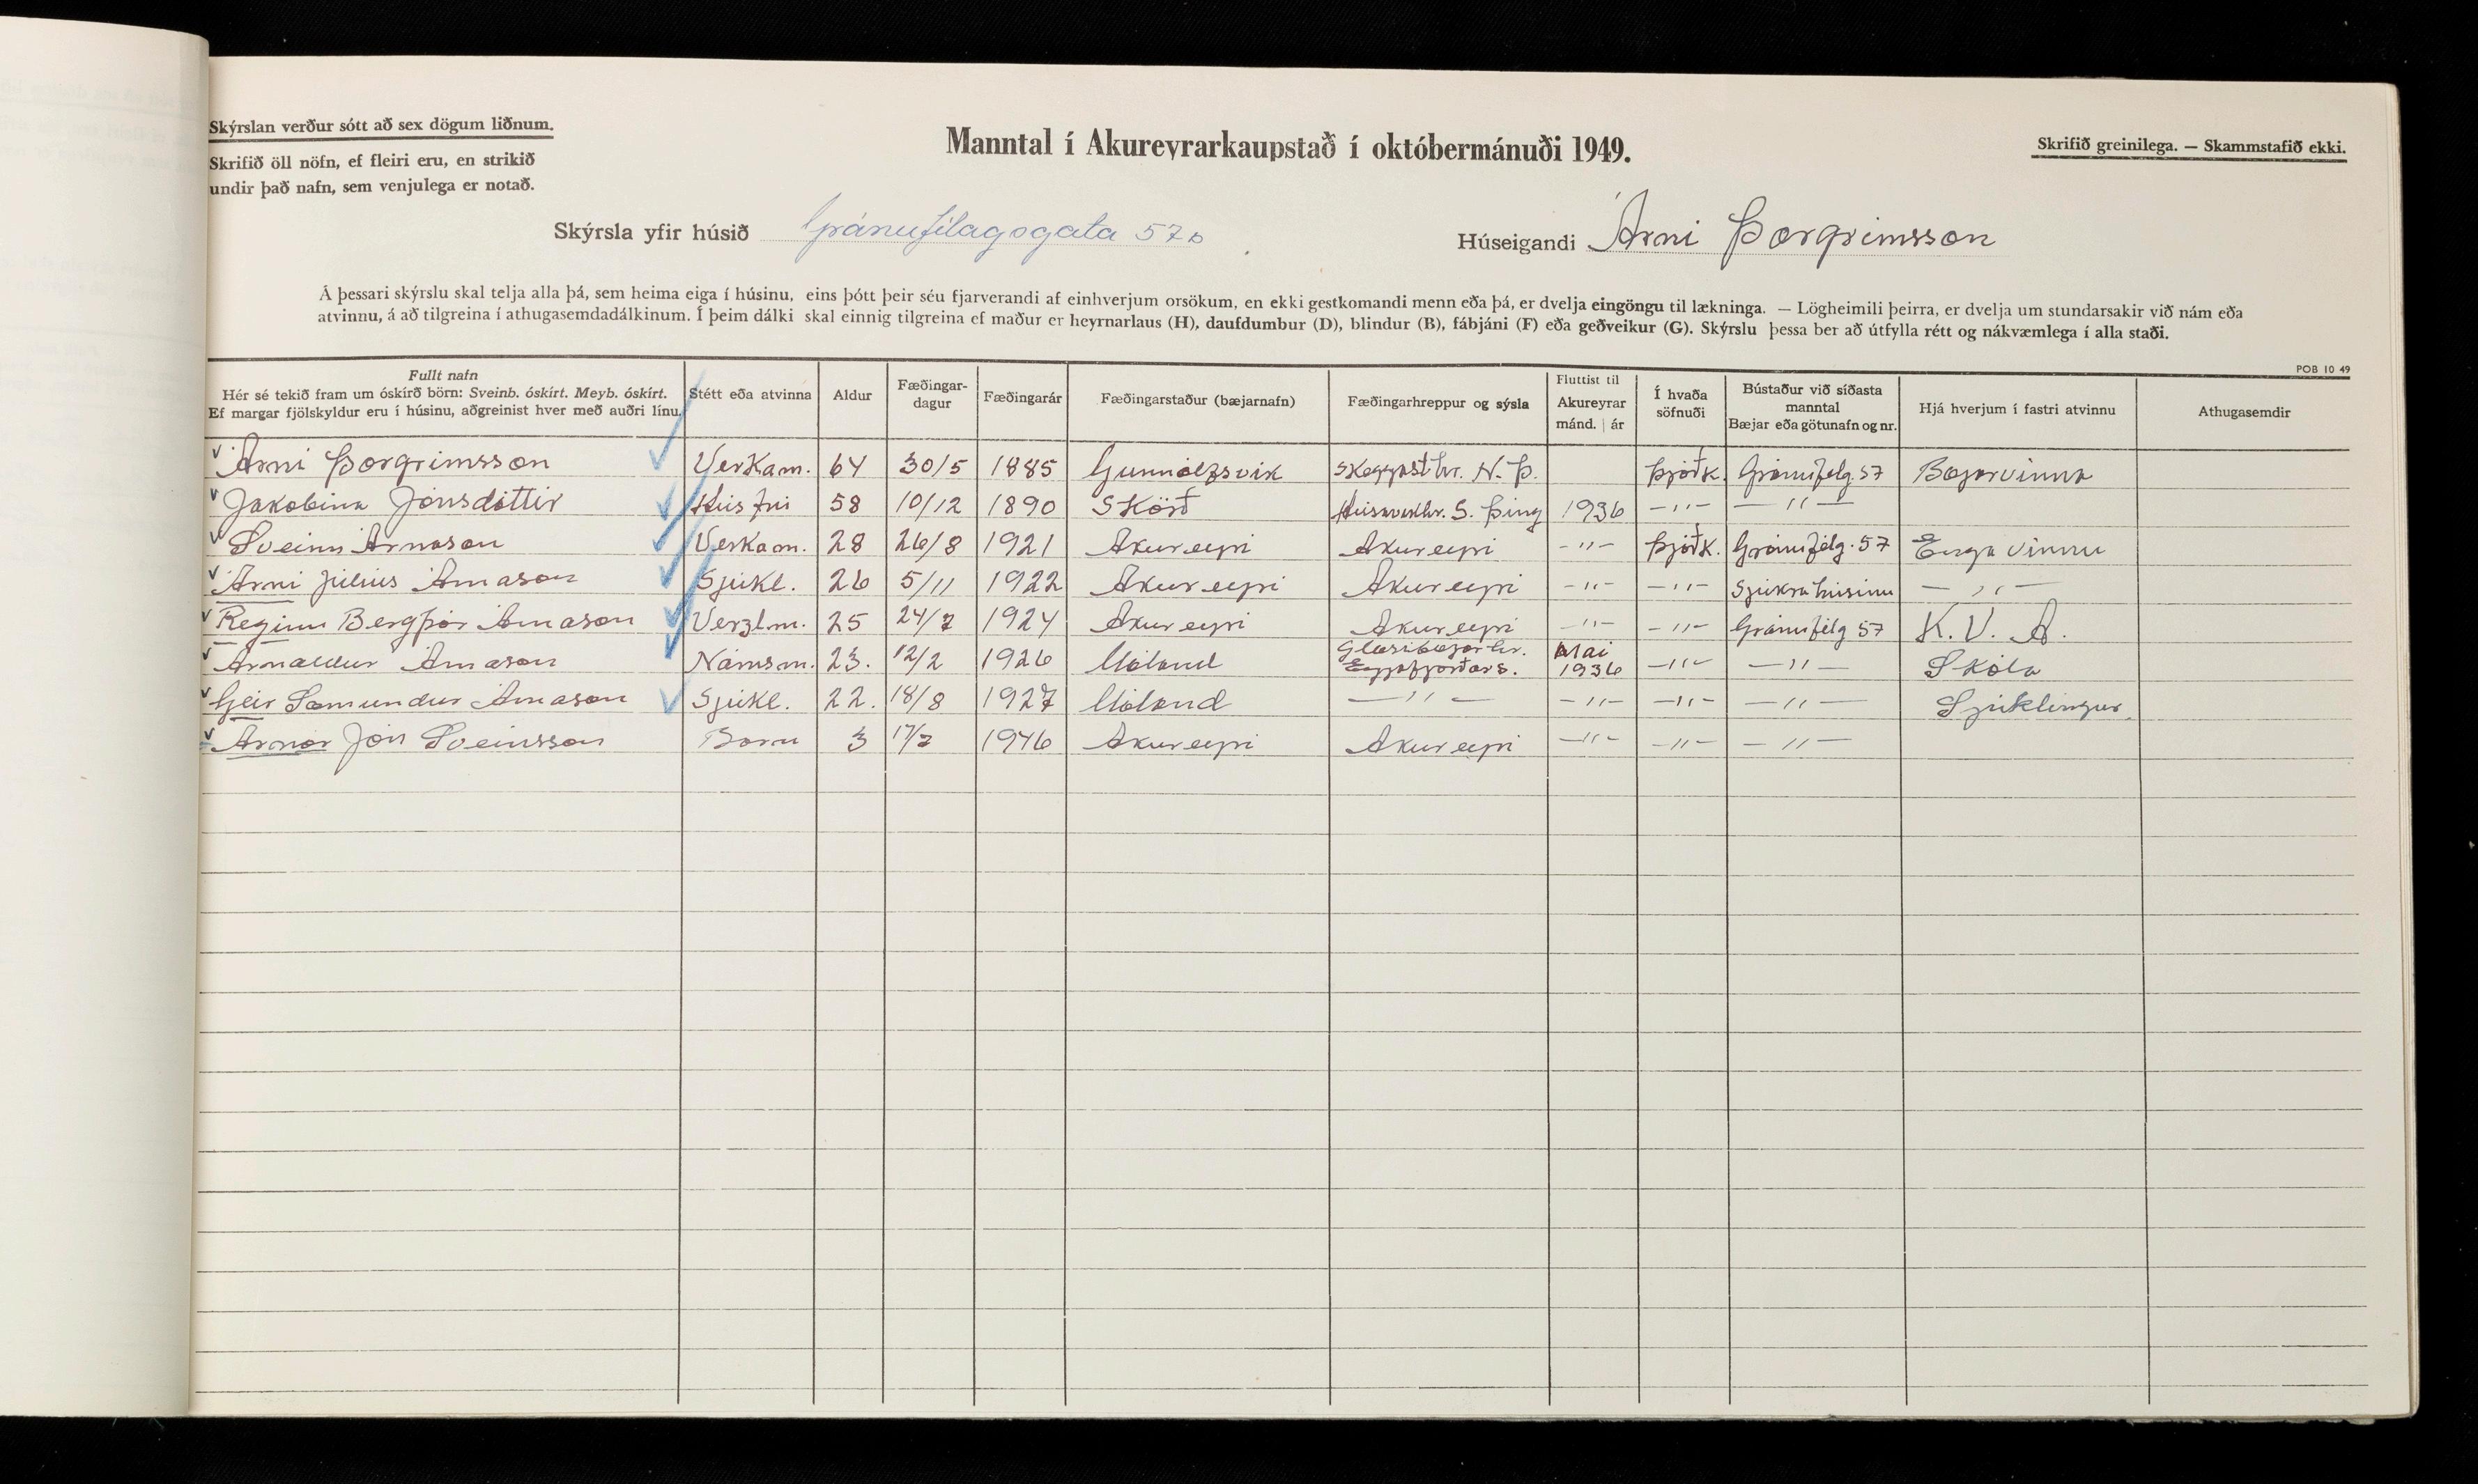 Skýrslan verður sótt að sex dögum liðnum.
Skrifið öll nöfn, ef fleiri eru, en strikið
undir það nafn, sem venjulega er notað.
Manntal í Akureyrarkaupstað í októbermánuði 1949.
Skrifið greinilega. — Skammstafið ekki.
Skýrsla yfir húsið Gránufélagsgata 57b
Húseigandi Árni Þorgrimsson
Á þessari skýrslu skal telja alla þá, sem heima eiga í húsinu, eins þótt þeir séu fjarverandi af einhverjum orsökum, en ekki gestkomandi menn eða þá, er dvelja eingöngu til lækninga. — Lögheimili þeirra, er dvelja um stundarsakir við nám eða
atvinnu, á að tilgreina í athugasemdadálkinum. Í þeim dálki skal einnig tilgreina ef maður er heyrnarlaus (H), daufdumbur (D), blindur (B), fábjáni (F) eða geðveikur (G). Skýrslu þessa ber að útfylla rétt og nákvæmlega í alla staði.
POB 10 49
Fullt nafn
Hér sé tekið fram um óskírð börn: Sveinb. óskírt. Meyb. óskírt.
Ef margar fjölskyldur eru í húsinu, aðgreinist hver með auðri línu.
Stétt eða atvinna
Aldur
Fæðingar-
dagur
Fæðingarár
Fæðingarstaður (bæjarnafn)
Fæðingarhreppur og sýsla
Fluttist til
Akureyrar
mánd. | ár
Í hvaða
söfnuði
Bústaður við síðasta
manntal
Bæjar eða götunafn og nr.
Hjá hverjum í fastri atvinnu
Athugasemdir
Árni Þorgrimsson Verkam. 64 30/5 1885 Gunnólfsvík Skeggjast.hr. N. Þ. Þjóðk. Gránufélg. 57 Bæjarvinna
Jakobína Jónsdóttir Húsfrú 58 10/12 1890 Skörð Húsavíkhr. S. Þing 1936 -"- -"-
Sveinn Árnason Verkam. 28 26/8 1921 Akureyri Akureyri -"- Þjóðk. Gránufélg. 57 Enga vinnu
Árni Júlíus Árnason Sjúkl. 26 5/11 1922 Akureyri Akureyri -"- -"- Sjúkrahúsinu -"-
Reginn Bergþór Árnason Verzlm. 25 24/7 1924 Akureyri Akureyri -"- -"- Gránufélg 57 K. V. A.
Arnaldur Árnason Námsm. 23. 12/2 1926 Móland Glæsibæjarhr. Eyjafjarðars. Mai 1936 -"- -"- Skóla
Geir Sæmundur Árnason Sjúkl. 22. 18/8 1927 Móland -"- -"- -"- -"- Sjúklingur.
Arnar Jón Sveinsson Barn 3 17/7 1946 Akureyri Akureyri -"- -"- -"-